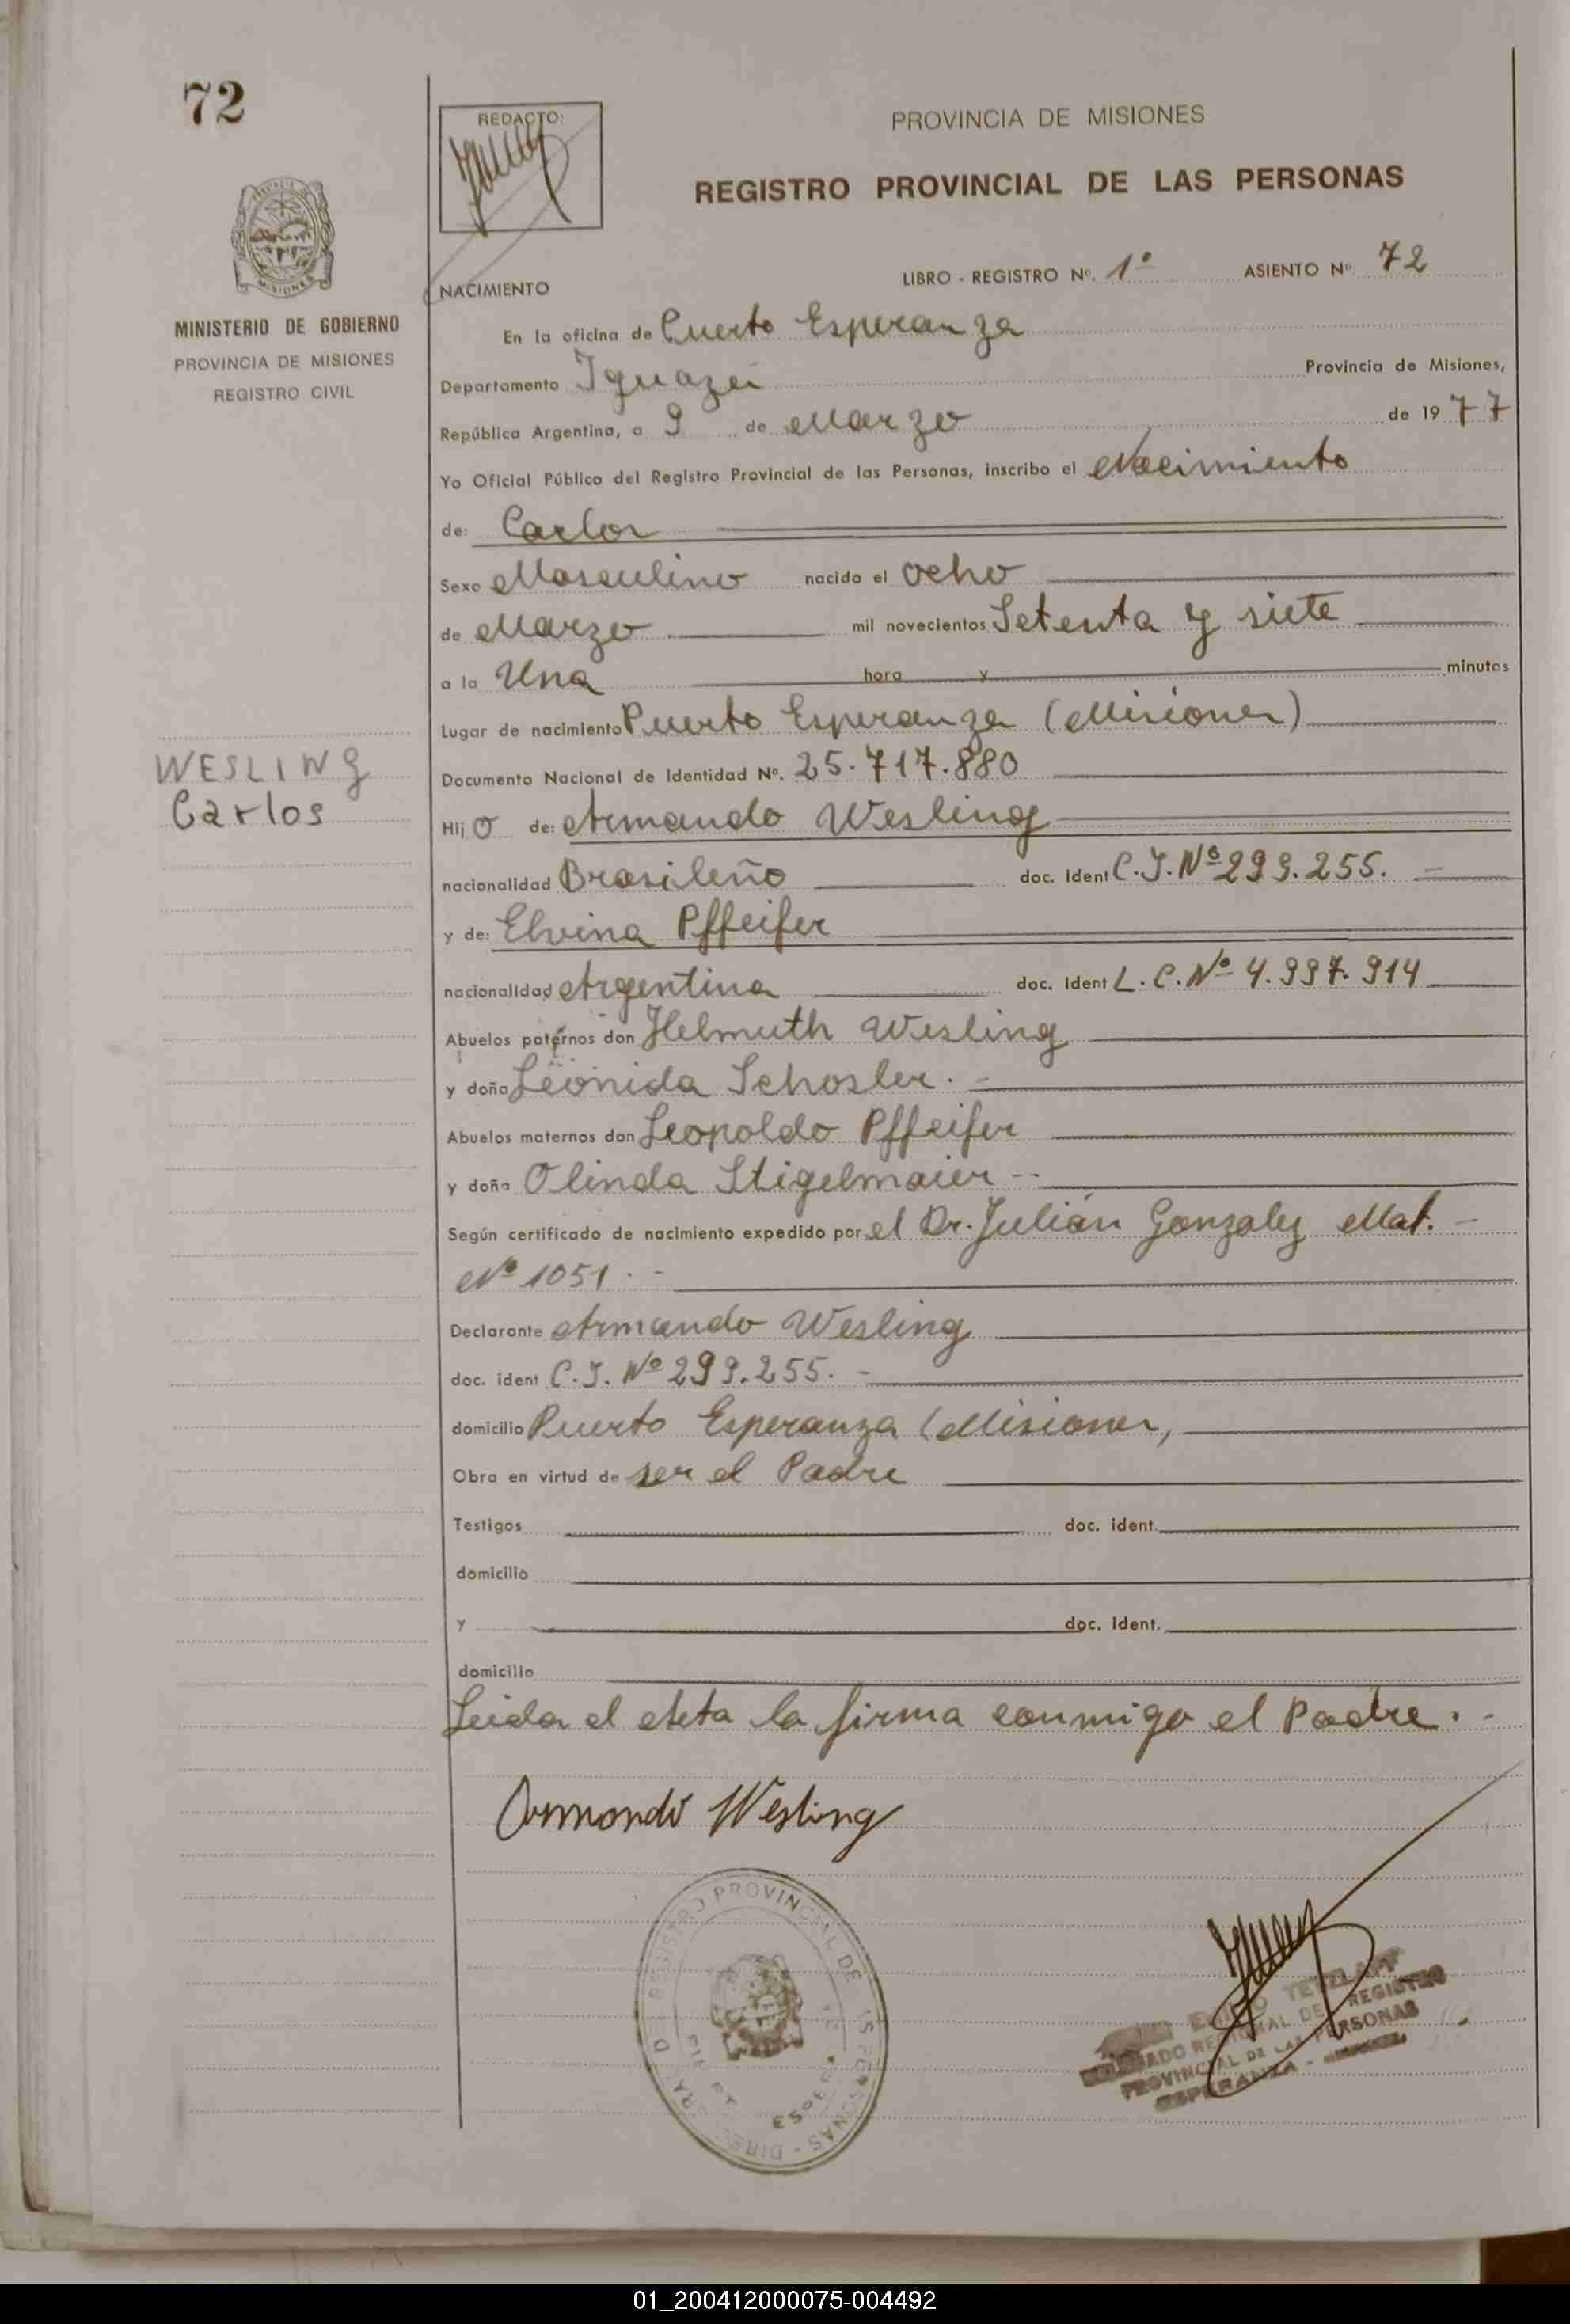 72
REDACTO:
PROVINCIA DE MISIONES
REGISTRO PROVINCIAL DE LAS PERSONAS
LIBRO - REGISTRO Nº. 1º ASIENTO Nº 72
NACIMIENTO
MINISTERIO DE GOBIERNO
PROVINCIA DE MISIONES
REGISTRO CIVIL
En la oficina de Puerto Esperanza
Departamento Iguazú Provincia de Misiones,
República Argentina, a 9 de Marzo de 1977
Yo Oficial Público del Registro Provincial de las Personas, inscribo el Nacimiento
de: Carlos
Sexo Masculino nacido el ocho
de Marzo mil novecientos Setenta y siete
a la Una hora y minutos
Lugar de nacimiento Puerto Esperanza (Misiones)
WESLING
Carlos
Documento Nacional de Identidad Nº. 25.717.880
Hij o de: Armando Wesling
nacionalidad Brasileño doc. ident C.I. Nº 299.255. -
y de: Elvina Pffeifer
nacionalidad Argentina doc. ident L.C. Nº 4.997.914
Abuelos paternos don Helmuth Wesling
y doña Leonida Schosler. -
Abuelos maternos don Leopoldo Pffeifer
y doña Olinda Stigelmaier --
Según certificado de nacimiento expedido por el Dr. Julián Gonzalez Mat. -
Nº 1051. -
Declarante Armando Wesling
doc. ident C.I. Nº 299.255. -
domicilio Puerto Esperanza (Misiones,
Obra en virtud de ser el Padre
Testigos doc. ident.
domicilio
y doc. ident.
domicilio
Leida el Acta la firma conmigo el Padre. -
Armando Wesling
REGISTRO PROVINCIAL DE LAS PERSONAS
REGIONAL DEL REGISTRO
PROVINCIAL DE LAS PERSONAS
ESPERANZA -
01_200412000075-004492